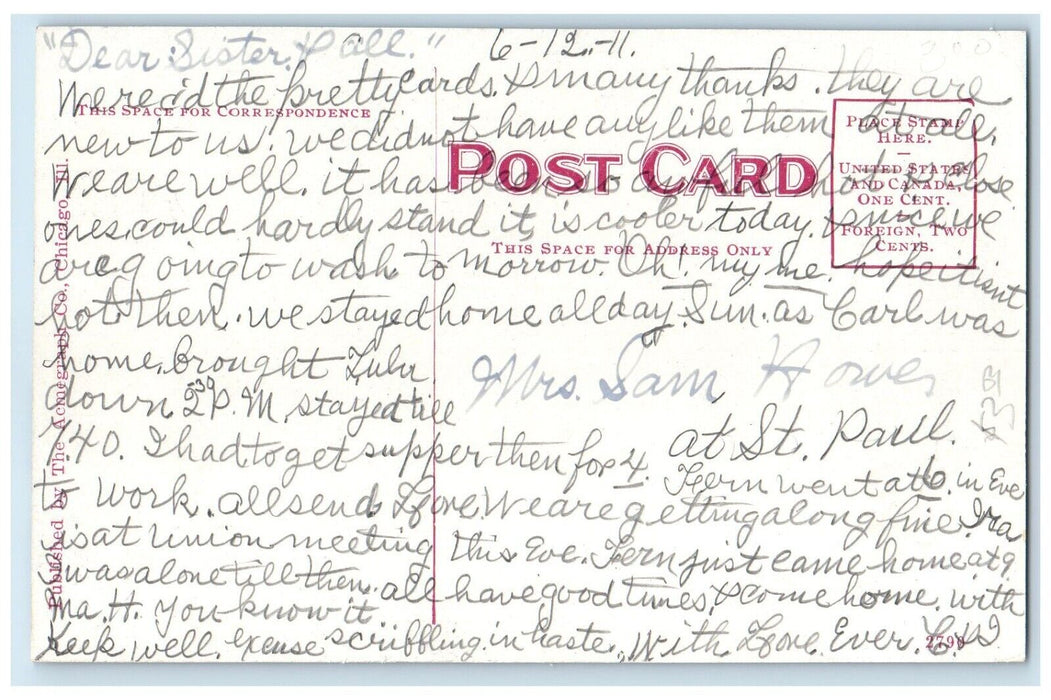 "Dear Sister & all." 6-12-11.
We rec'd the pretty cards. & many thanks. they are
THIS SPACE FOR CORRESPONDENCE
new to us. we did not have any like them at all.
We are well. it has been so hot close
ones could hardly stand it, is cooler today. & since we
are going to wash to morrow. Oh! my me. hope it isnt
hot then. we stayed home all day. Sun. as Carl was
home. brought
down 2 30 P.M. stayed till
7.40. I had to get supper then for 4. Fern went at 6. in Eve
to work. all send Love. We are getting along fine. Ira
is at Union meeting this Eve. Fern just came home at 9
I was alone till then. all have good times, & come home. with
Ma. H. you know it
Keep well. excuse scribbling. in haste. With. Love. Ever.
POST CARD
THIS SPACE FOR ADDRESS ONLY
Mrs. Sam Howes
at St. Paul.
PLACE STAMP
HERE.
—
UNITED STATES
AND CANADA,
ONE CENT.
—
FOREIGN, TWO
CENTS.
Published by The Acmegraph Co., Chicago, Ill.
2799